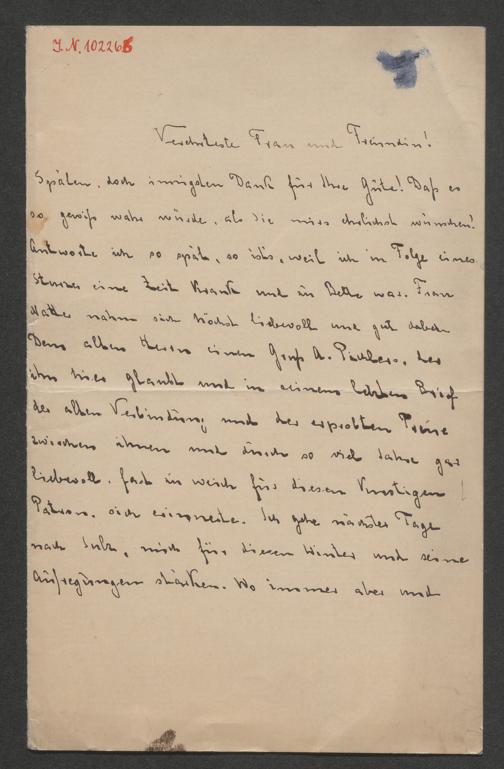 I.N. 102266
Verehrteste Frau und Freundin!
Späten, doch innigsten Dank für Ihre Güte! Daß es
so gewiß wahr würde, als Sie mirs ehrlichst wünschen!
Antworte ich so spät, so ists, weil ich in Folge eines
Sturzes eine Zeit krank und in Bette war. Frau
nahm sich höchst liebevoll und gut dabei
Dem alten Herrn einen Gruß A. Pichlers, der
ihn hier glaubt und in seinem letzten Brief
der alten Verbindung und der erprobten Treue
zwischen ihnen und durch so viel Jahre gar
liebevoll, fast zu weich für diesen knorrigen
Patron, sich erinnerte. Ich gehe nächster Tage
nach , mich für diesen Winter und seine
Aufregungen stärken. Wo immer aber und